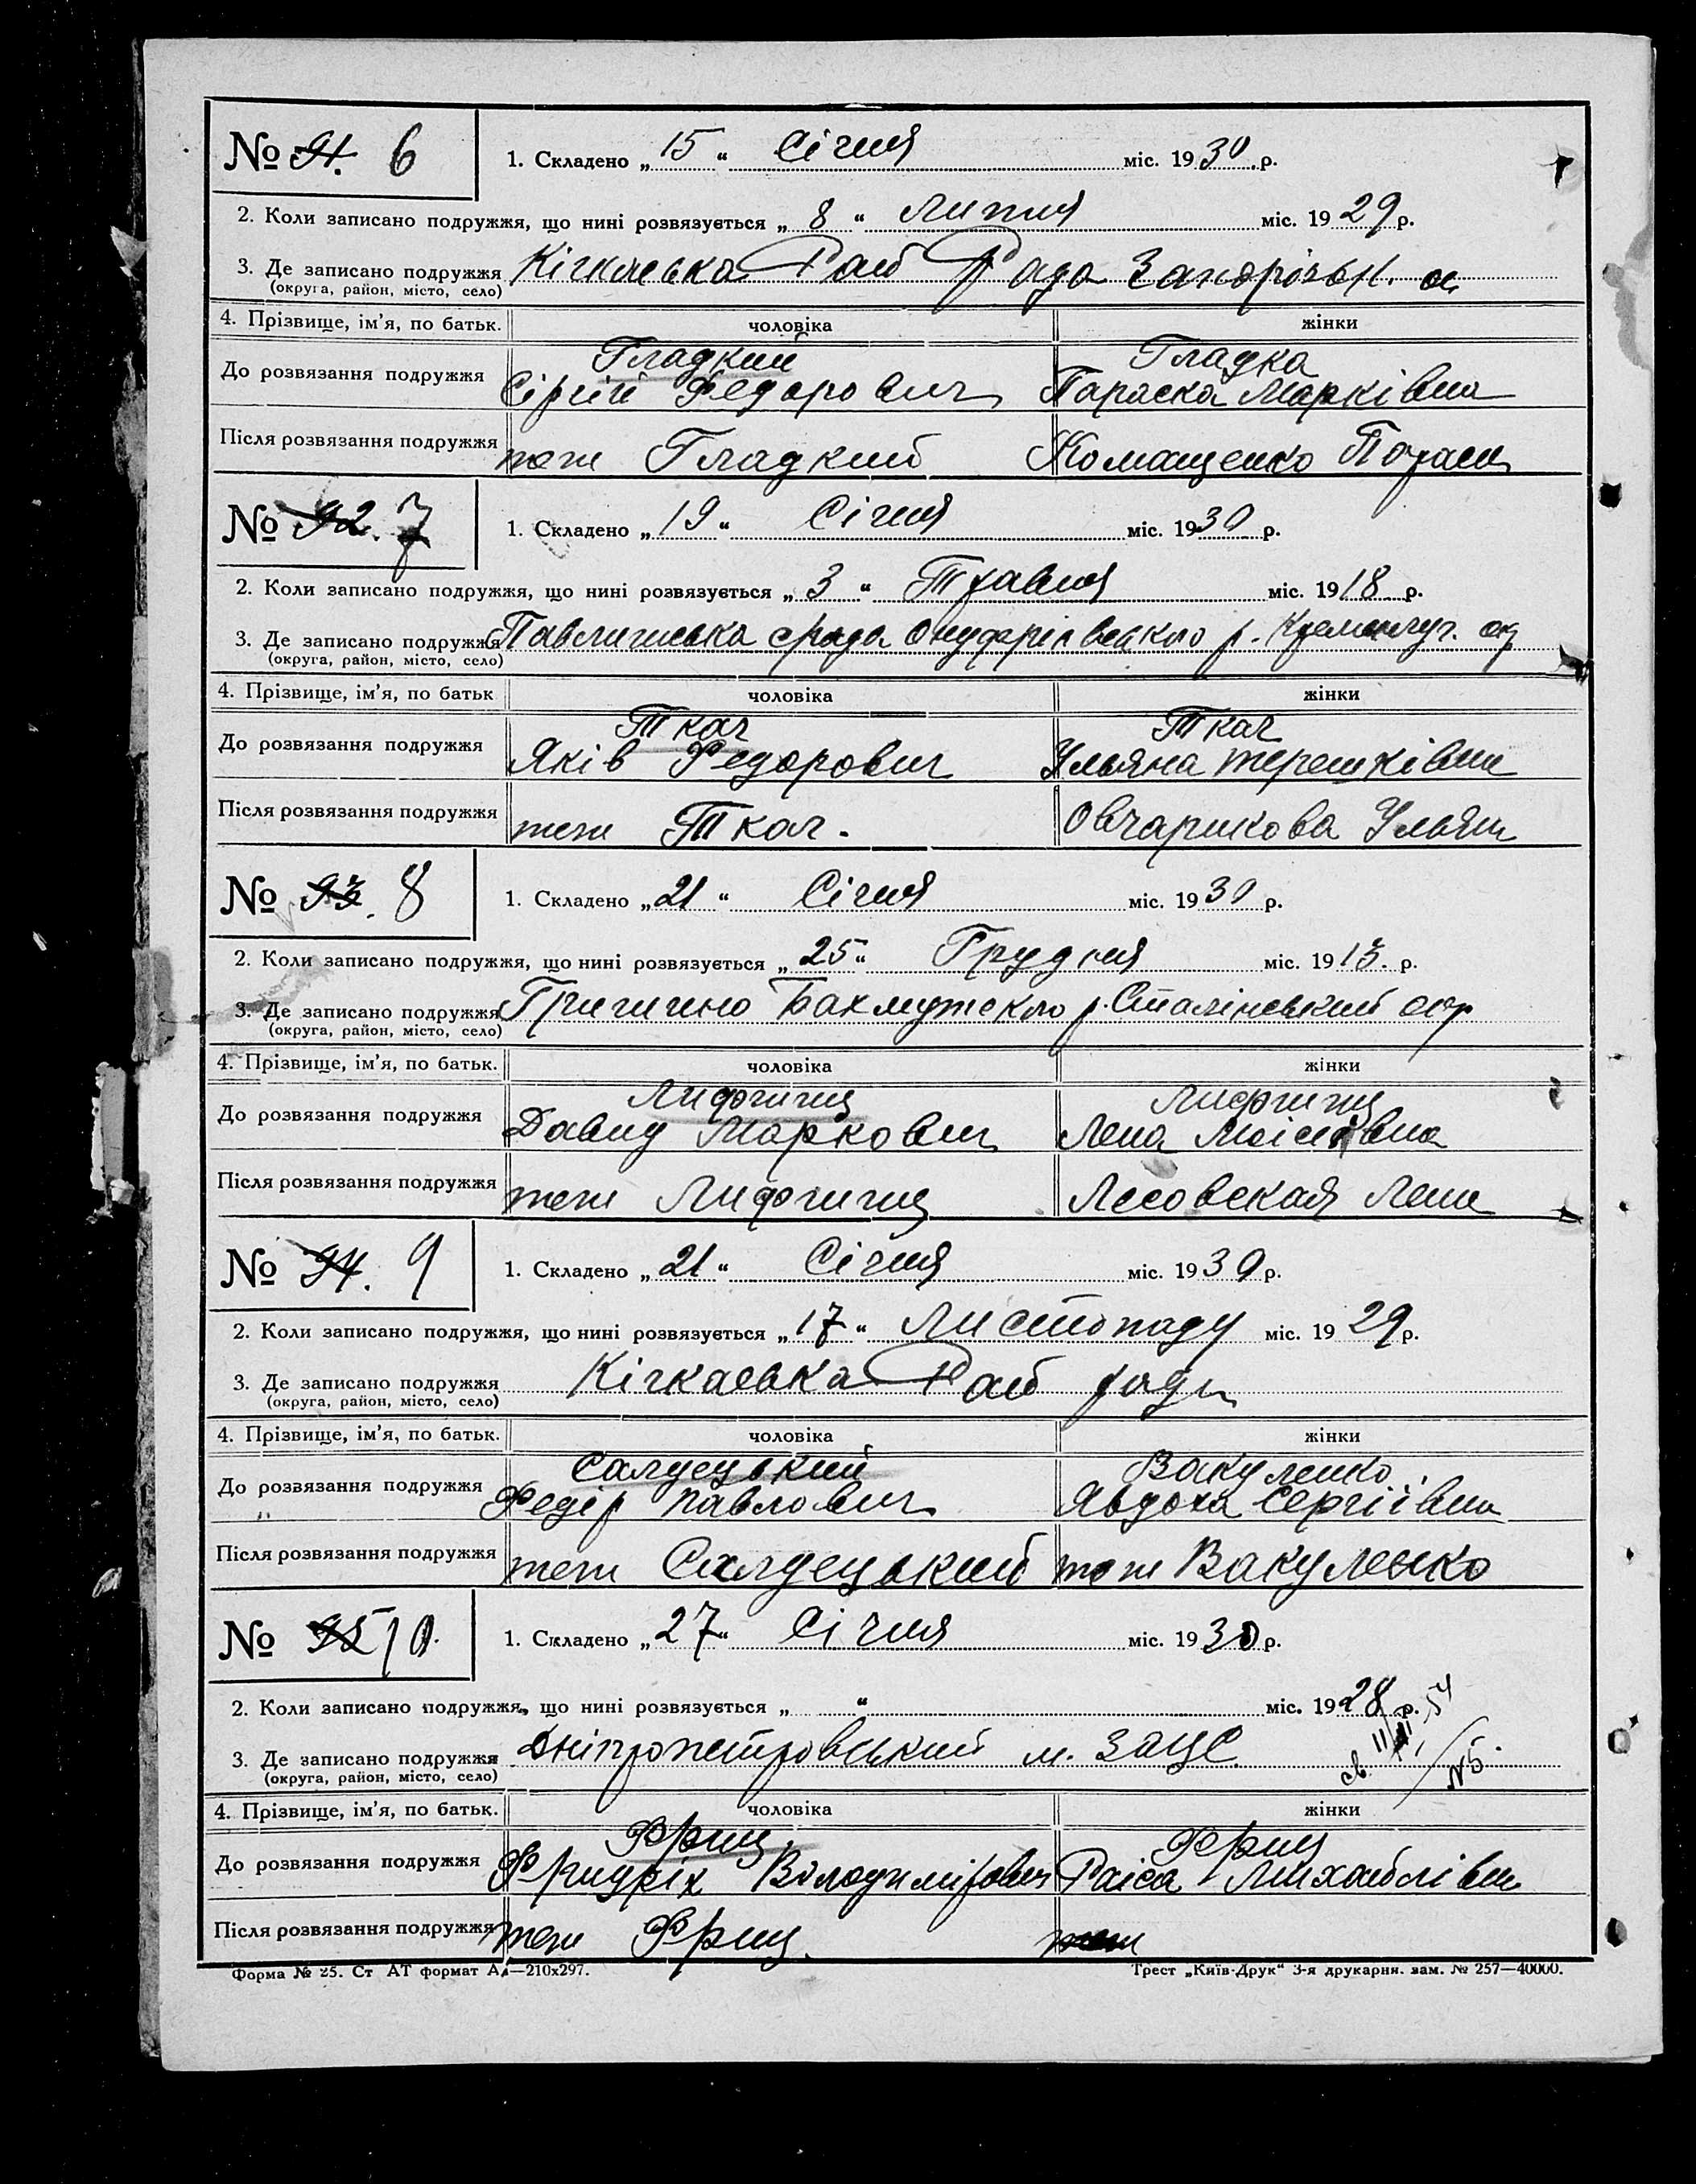 № 91. 6
1. Складено „15“ Січня міс. 1930 р.
2. Коли записано подружжя, що нині розвязується „8“ Липня міс. 1929 р.
3. Де записано подружжя Кічкаська Рай Рада Запоріжськ. ок
(округа, район, місто, село)
4. Прізвище, ім'я, по батьк. чоловіка жінки
Гладкий Гладка
До розвязання подружжя Сіргій Федорович Параска Марківна
Після розвязання подружжя теж Гладкий
№ 92. 7
1. Складено „19“ Січня міс. 1930 р.
2. Коли записано подружжя, що нині розвязується „3“ Травня міс. 1918 р.
3. Де записано подружжя Павлиська срада Онуфріївського р. Кременчуг. ок
(округа, район, місто, село)
4. Прізвище, ім'я, по батьк чоловіка жінки
Ткач Ткач
До розвязання подружжя Яків Федорович Ульяна Терешківна
Після розвязання подружжя теж Ткач. Овчарикова Ульян
№ 93. 8
1. Складено „21“ Січня міс. 1930 р.
2. Коли записано подружжя, що нині розвязується „25“ Грудня міс. 1913. р.
3. Де записано подружжя Гришино Бахмутского р. Сталінський окр
(округа, район, місто, село)
4. Прізвище, ім'я, по батьк. чоловіка жінки
Лифшиц Лифшиц
До розвязання подружжя Давид Маркович Лена
Після розвязання подружжя теж Лифшиц Лесовская Лена
№ 94. 9
1. Складено „21“ Січня міс. 1930 р.
2. Коли записано подружжя, що нині розвязується „17“ Листопаду міс. 1929 р.
3. Де записано подружжя Кічкаська Рай рада
(округа, район, місто, село)
4. Прізвище, ім'я, по батьк. чоловіка жінки
Салдецький Вакуленко
До розвязання подружжя Федір Павлович Явдоха Сергіївна
Після розвязання подружжя теж Салдецький теж Вакуленко
№ 95 10.
1. Складено „27“ Січня міс. 1930 р.
2. Коли записано подружжя, що нині розвязується „ “ міс. 1928 р.
3. Де записано подружжя Дніпропетровський м. ЗАЦС
(округа, район, місто, село)
св. 54 / №5.
4. Прізвище, ім'я, по батьк. чоловіка жінки
Фриц Фриц
До розвязання подружжя Фридріх Володимірович Раіса Михайлівн
Після розвязання подружжя теж Фриц. теж
Форма № 25. Ст АТ формат А4—210х297. Трест „Київ-Друк“ 3-я друкарни. зам. № 257—40000.